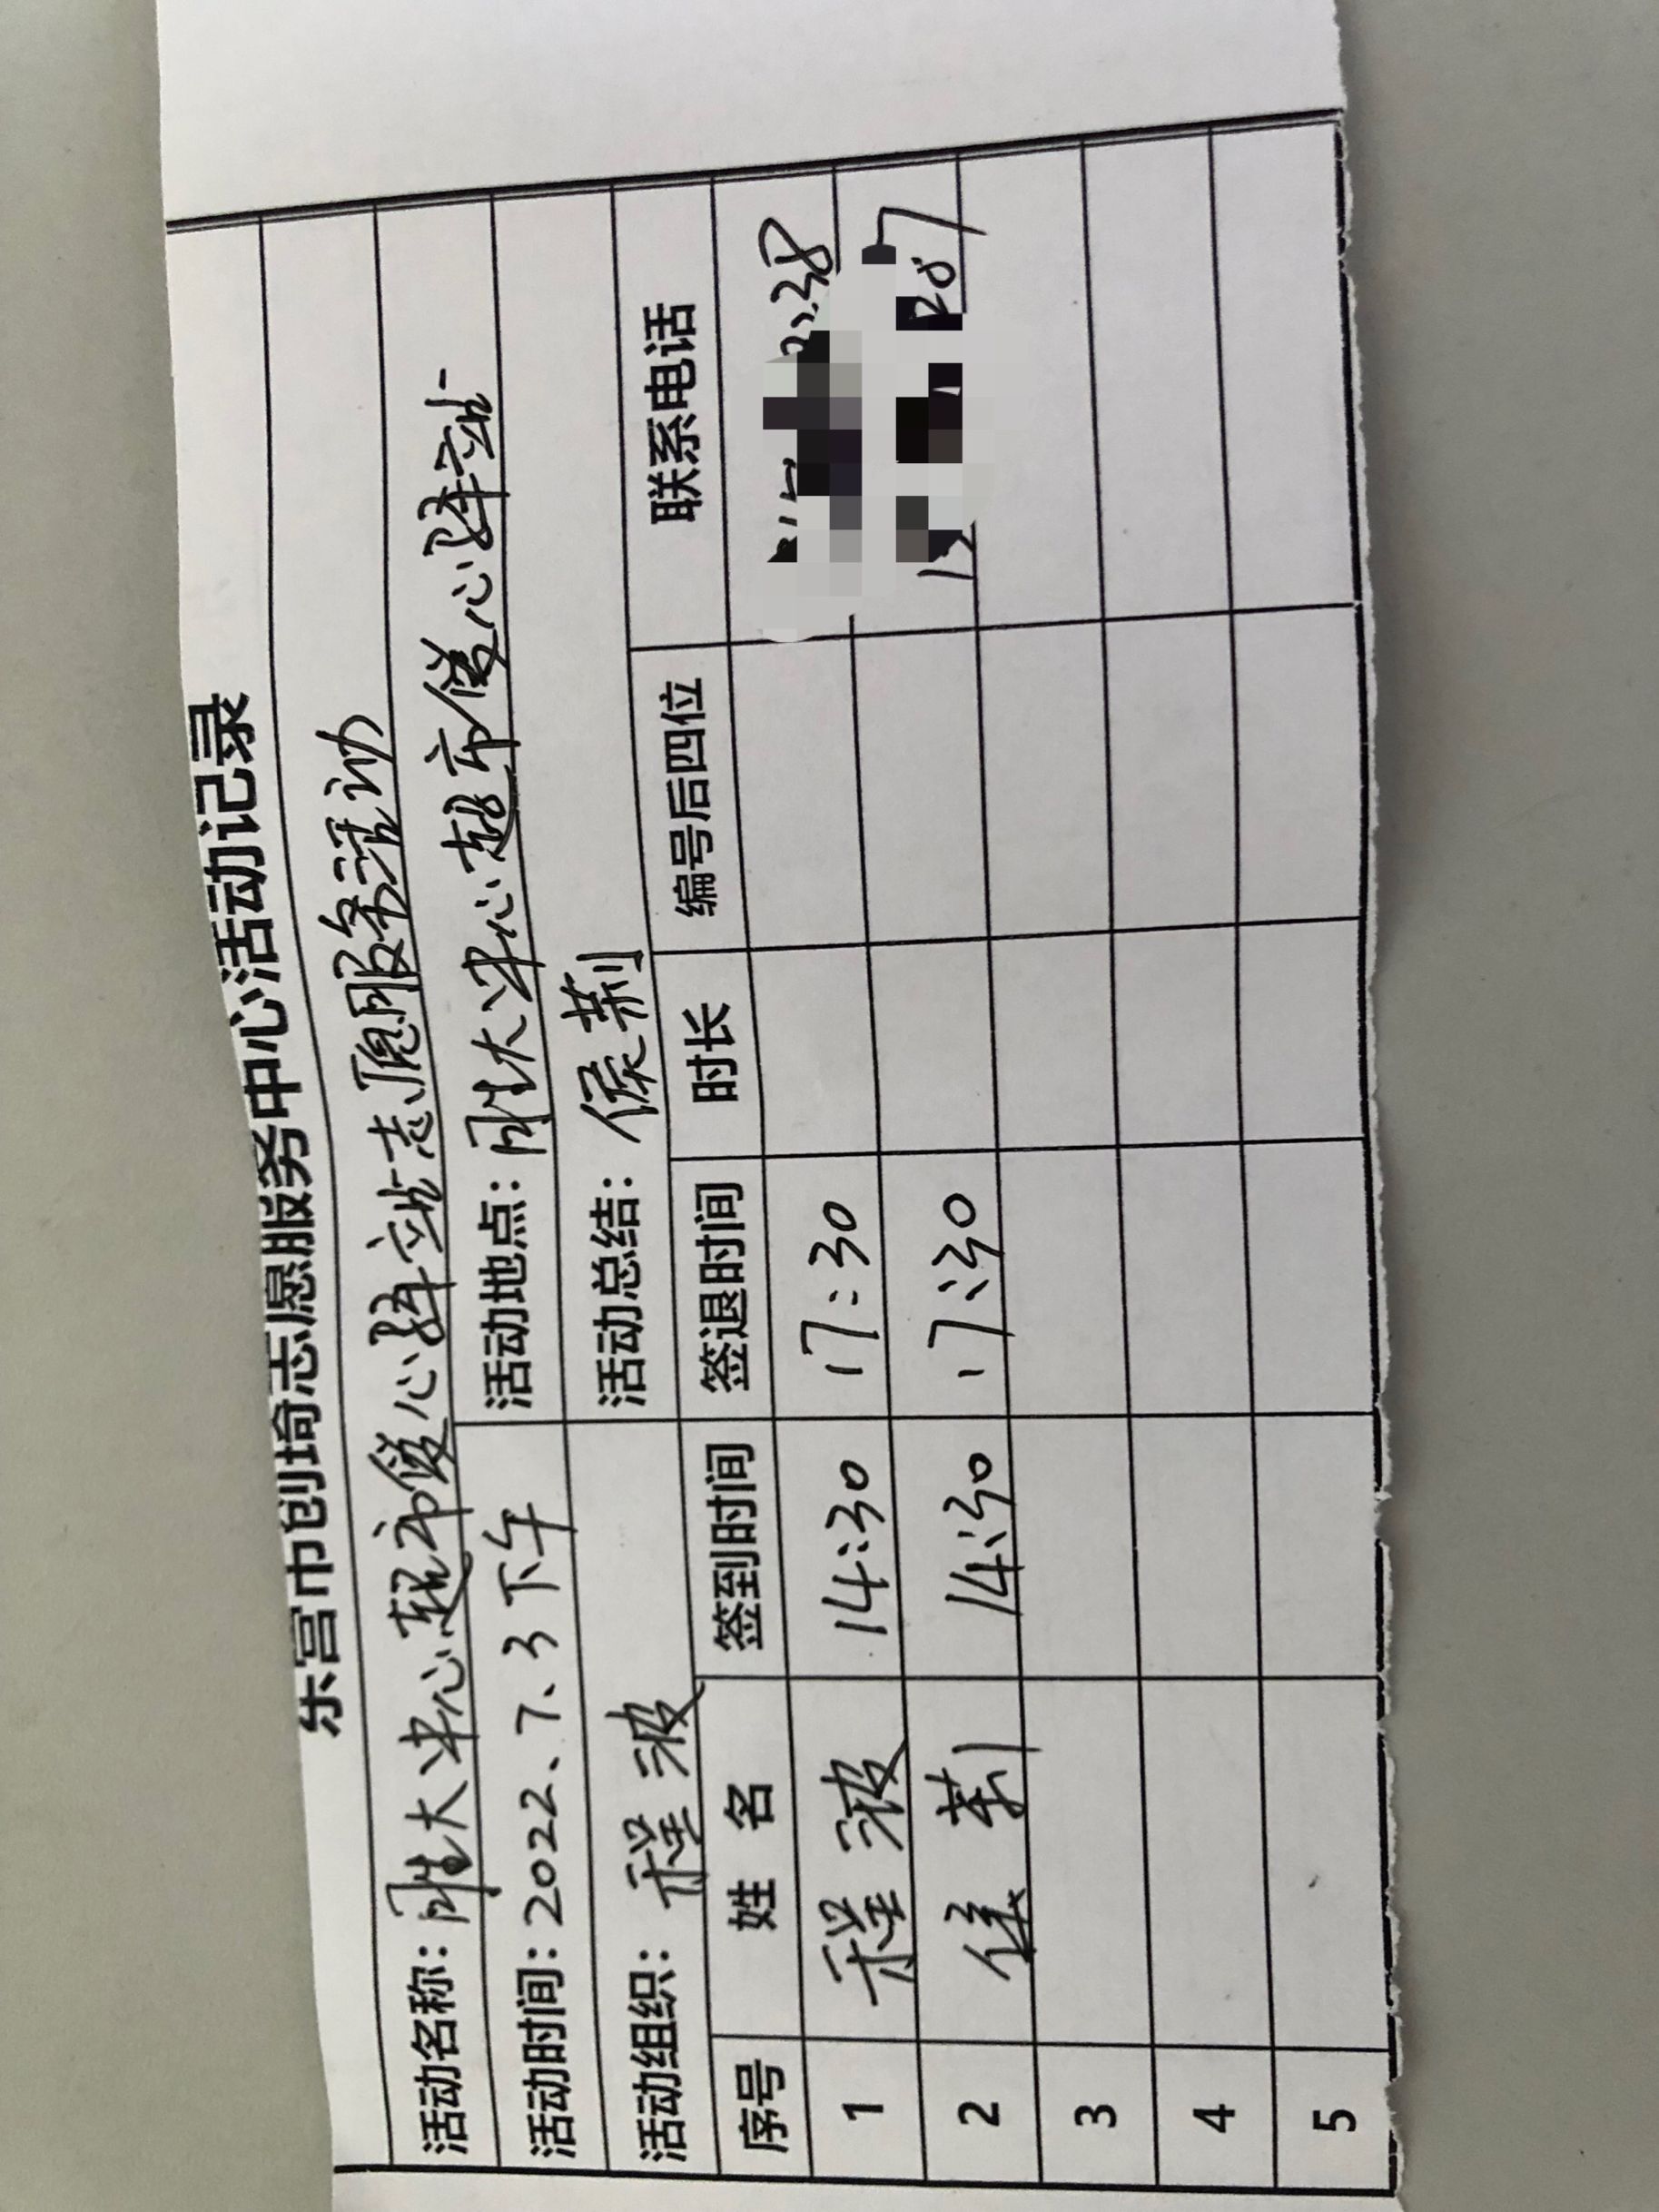 东营市创琦志愿服务中心活动记录
活动名称：胜大中心超市暖心驿站志愿服务活动
活动时间：2022、7、3下午 活动地点：胜大中心超市暖心驿站
活动组织：程波 活动总结：侯莉
序号 姓名 签到时间 签退时间 时长 编号后四位 联系电话
1 程波 14:30 17:30
2 侯莉 14:30 17:30
3
4
5